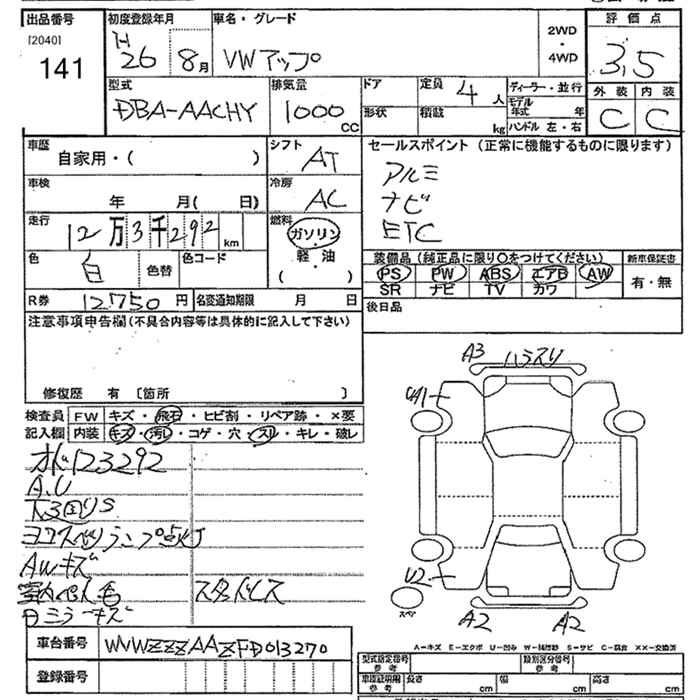 出品番号
[2040]
141
初度登録年月
H 26 8月
車名・グレード
VWアップ
2WD
・
4WD
評価点
3,5
外装 内装
C C
型式
DBA-AACHY
排気量
1000
CC
ドア
形状
定員 4人
積載 kg
ディーラー・並行
モデル年式 年
ハンドル 左・右
車歴
自家用・( )
シフト
AT
車検
年 月( 日)
冷房
AC
走行
12万3千292 km
燃料
ガソリン
・
軽油
( )
色
白
色替
色コード
R券 12750円
名変通知期限 月 日
セールスポイント (正常に機能するものに限ります)
アルミ
ナビ
ETC
装備品 (純正品に限り〇をつけてください)
PS PW ABS エアB AW
SR ナビ TV カワ
新車保証書
有・無
後日品
注意事項申告欄 (不具合内容等は具体的に記入して下さい)
修復歴 有 〔箇所 〕
検査員 FW キズ・飛石・ヒビ割・リペア跡・×要
記入欄 内装 キズ・汚レ・コゲ・穴・スレ・キレ・破レ
オド123292
A,U
下回りS
ヨコスベリランプ点灯
AWキズ
室内ペん毛 スタッドレス
日ミラーキズ
A3 ハラスリ
UA1
U2
スペ
A2 A2
車台番号 WVWZZZAAZFD013270
登録番号
A-キズ E-エクボ U-凹み W-補修跡 S-サビ C-腐食 ××-交換済
型式指定番号
参考
類別区分番号
参考
車庫証明用
参考
長さ cm
幅 cm
高さ cm